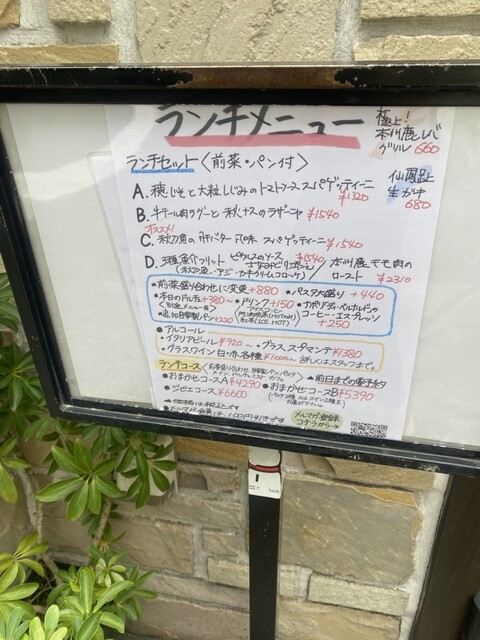 ランチメニュー
極上!
本川鹿レバ
グリル 660
ランチセット〈前菜・パン付〉
仙鳳趾
生がき
680
A. 穂じそと大粒しじみのトマトソーススパゲッティーニ ¥1320
B. 牛テール肉ラグーと秋ナスのラザーニャ ¥1540
オススメ!
C. 秋刀魚の肝バター風味 スパゲッティーニ ¥1540
D. 3種魚介フリット ピクルスのソース ¥1540
(秋刀魚・アジ・
本川鹿モモ肉の
ロースト ¥2310
・前菜盛り合わせに変更 +880
・パスタ大盛り +440
・本日のドルチェ +380〜
〈別途メニュー有〉
・追加自家製パン +220
・ドリンク +150
(アイスコーヒー
紅茶(ICE, HOT)
・ナポリ
コーヒー・エスプレッソ
+250
●アルコール
・イタリアビール ¥920〜 ・グラス スプマンテ ¥1380
・グラスワイン 白・赤 各種 ¥1000〜 詳しくはスタッフまで。
ランチコース
▲前日までの要予約
●おまかせコースA ¥4290
●おまかせコースB ¥5390
●ジビエコース ¥6600
●メルマガ会員は、100円引きです
メルマガ登録
コチラから→